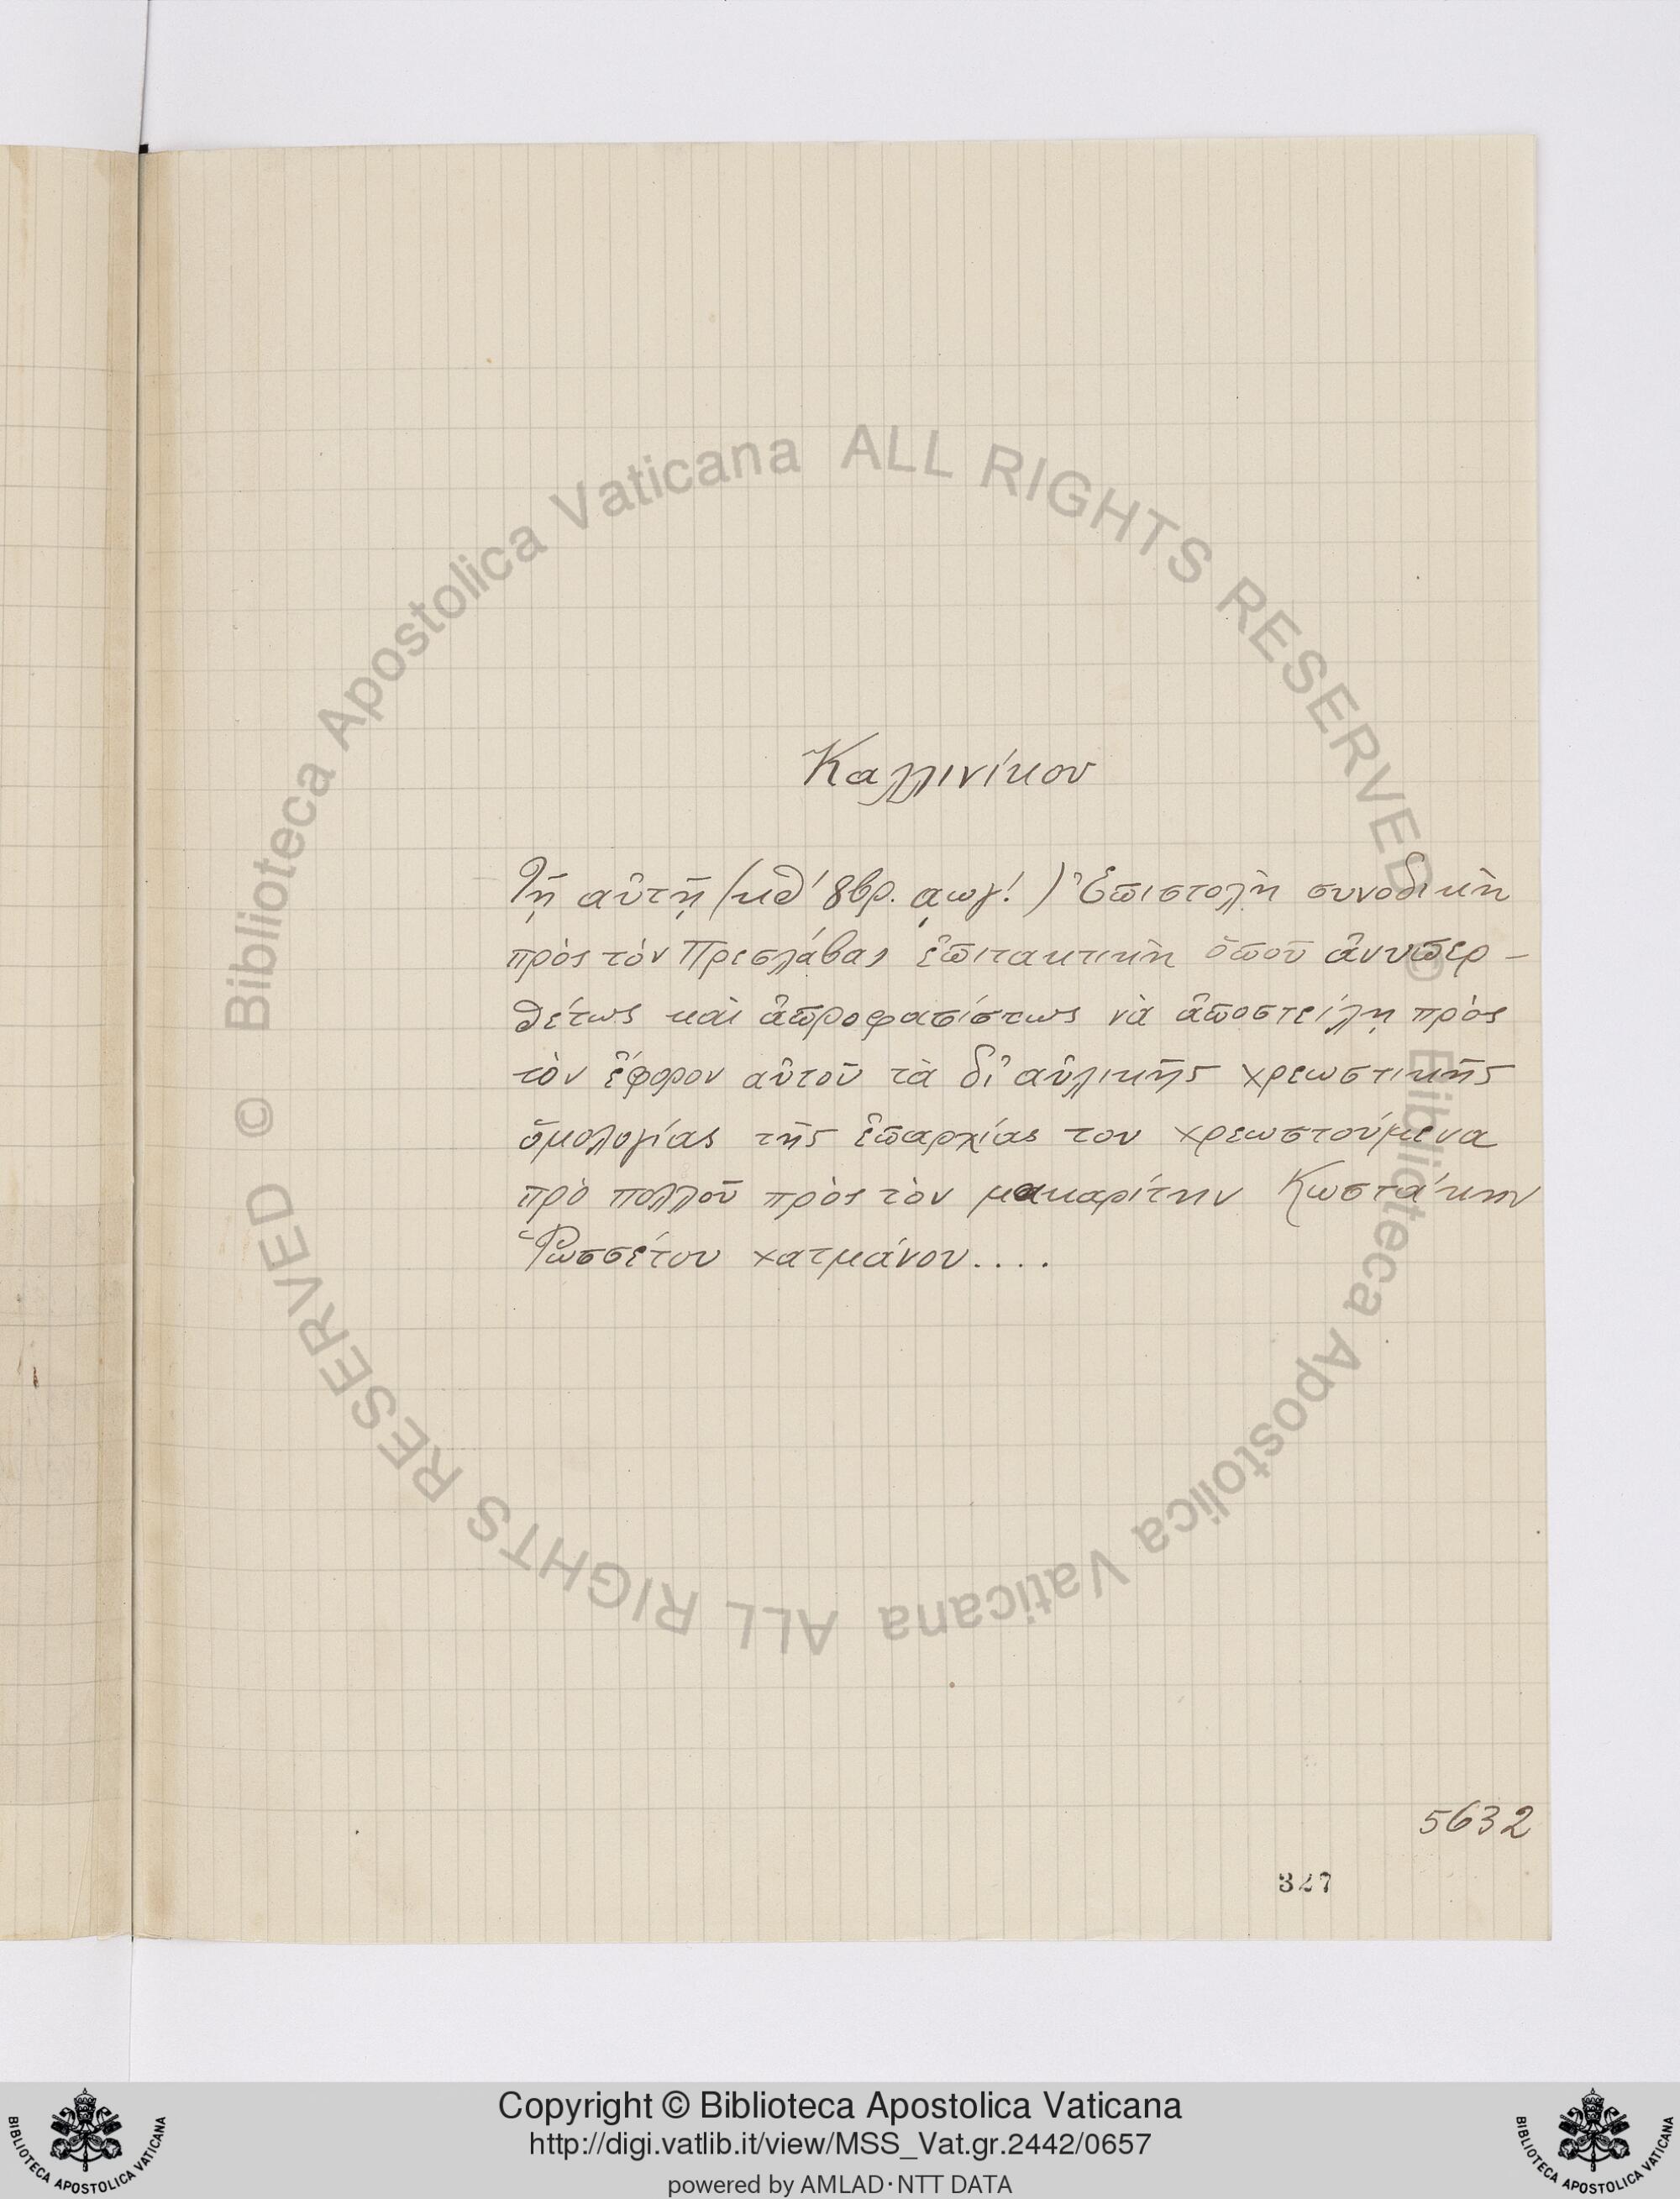 Καλλινίκου
Τῇ αὐτῇ (κθ' 8βρ. ͵αωγ'.) Ἐπιστολὴ συνοδικὴ
πρὸς τὸν Πρεσλάβας ἐπιτακτικὴ ὁποῦ ἀνυπερ-
θέτως καὶ ἀπροφασίστως νὰ ἀποστείλῃ πρὸς
τὸν ἔφορον αὐτοῦ τὰ δι' αὐλικῆς χρεωστικῆς
ὁμολογίας τῆς ἐπαρχίας του χρεωστούμενα
πρὸ πολλοῦ πρὸς τὸν μακαρίτην Κωστάκην
Ῥωσσέτου χατμάνου....
5632
327
© Biblioteca Apostolica Vaticana ALL RIGHTS RESERVED
© Biblioteca Apostolica Vaticana ALL RIGHTS RESERVED
Copyright © Biblioteca Apostolica Vaticana
http://digi.vatlib.it/view/MSS_Vat.gr.2442/0657
powered by AMLAD·NTT DATA
BIBLIOTECA APOSTOLICA VATICANA
BIBLIOTECA APOSTOLICA VATICANA